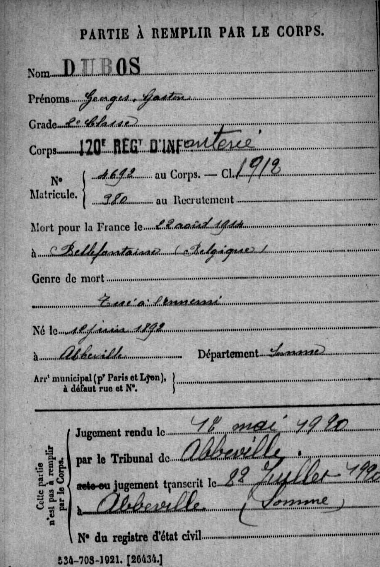 PARTIE À REMPLIR PAR LE CORPS.
Nom DUBOS
Prénoms Georges, Gaston
Grade 2e Classe
Corps 120e RÉGt D'INFanterie
No 4692 au Corps. — Cl. 1912
Matricule. 980 au Recrutement
Mort pour la France le 22 août 1914
à Bellefontaine (Belgique)
Genre de mort
Tué à l'ennemi
Né le juin 1892
à Abbeville Département Somme
Arrt municipal (pr Paris et Lyon),
à défaut rue et No.
Cette partie
n'est pas à remplir
par le Corps.
Jugement rendu le 18 mai 1920
par le Tribunal de Abbeville.
acte ou jugement transcrit le Juillet 1920
à Abbeville (Somme)
No du registre d'état civil
534-708-1921. [26434.]